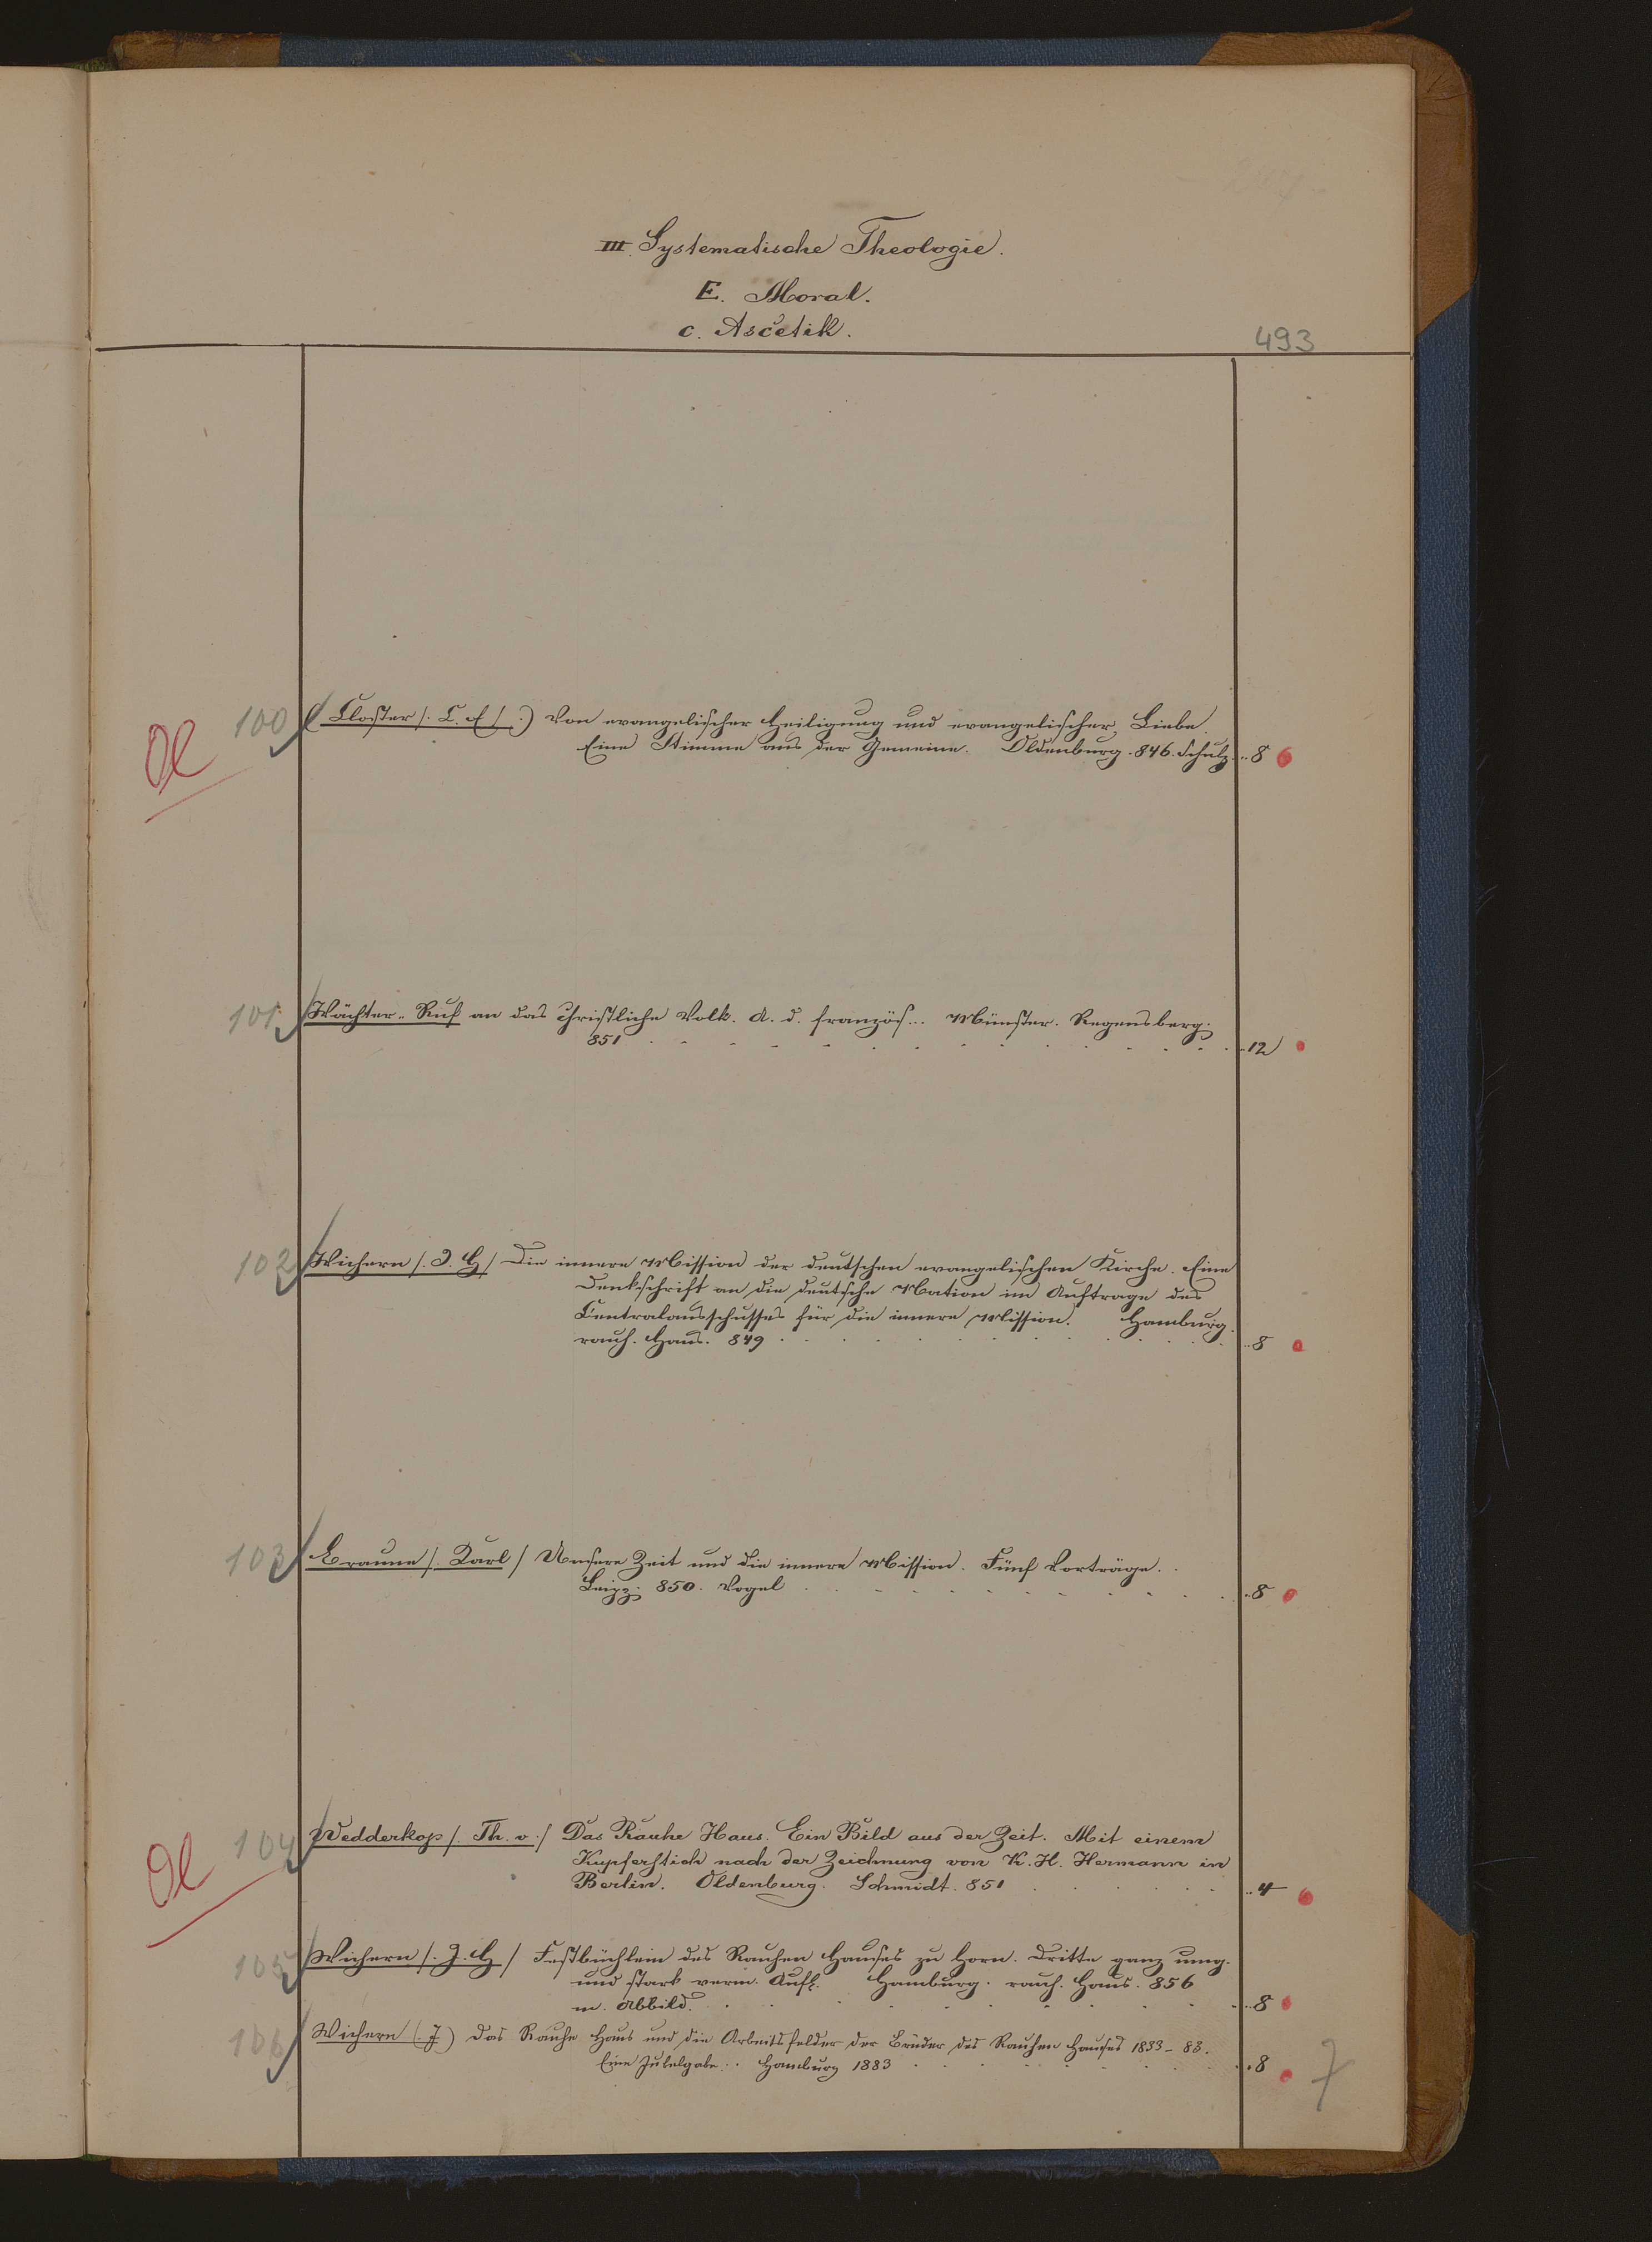 III. Systematische Theologie.
E. Moral.
c. Ascetik.
493
Ol
100 (Closter /. C. A /.) Von evangelischer Heiligung und evangelischer Liebe.
Eine Stimme aus der Gemeine. Oldenburg. 846. Schulz. .. 8
101 Wächter-Ruf an das christliche Volk. A. d. französ... Münster. Regensberg.
851 . . . . . . . . . . . . . . 12
102 Wichern /. J. H / Die innere Mission der deutschen evangelischen Kirche. Eine
Denkschrift an die deutsche Nation im Auftrage des
Centralausschusses für die innere Mission. Hamburg.
rauh. Haus. 849 . . . . . . . . . . .. 8
103 Braune /. Karl / Unsere Zeit und die innere Mission. Fünf Vorträge. .
Leipz. 850. Vogel . . . . . . . . . . .. 8
Ol
104 Wedderkop /. Th. v. / Das Rauhe Haus. Ein Bild aus der Zeit. Mit einem
Kupferstich nach der Zeichnung von K. H. Hermann in
Berlin. Oldenburg. Schmidt. 851 . . . . . .. 4
105 Wichern /. J. H / Festbüchlein des Rauhen Hauses zu Horn. Dritte ganz umg.
und stark verm. Aufl. Hamburg. rauh. Haus. 856
m. Abbild. . . . . . . . . . . .. 8
106 Wichern (. J) Das Rauhe Haus und die Arbeitsfelder der Brüder des Rauhen Hauses 1833-83.
Eine Jubelgabe. .. Hamburg 1883 . . . . . . .. 8
7